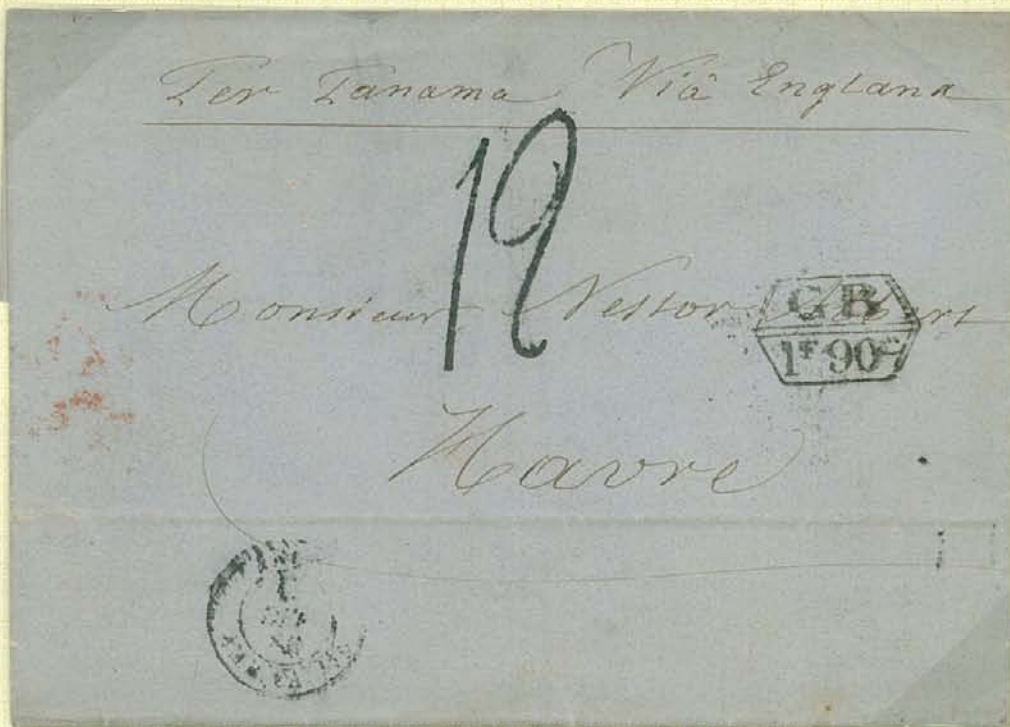 Per Panama Viâ England
12
Monsieur Nestor
GB
1F 90c
Havre